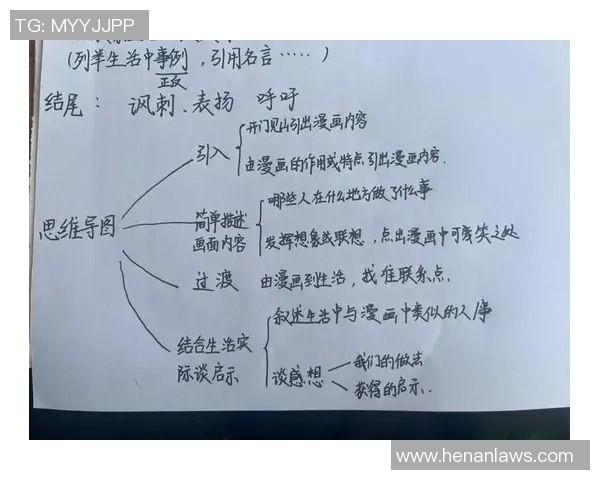 TG: MYYJJPP
(列举生活中事例,引用名言……)
正反
结尾: 讽刺、表扬 呼吁
思维导图
引入
开门见山引出漫画内容
由漫画的作用或特点引出漫画内容.
简单描述
画面内容
哪些人在什么地方做了什么事
发挥想象或联想,点出漫画中可笑之处
过渡 由漫画到生活,找准联系点.
结合生活实
际谈启示
叙述生活中与漫画中类似的人事
谈感想
我们的做法
获得的启示.
www.henanlaws.com